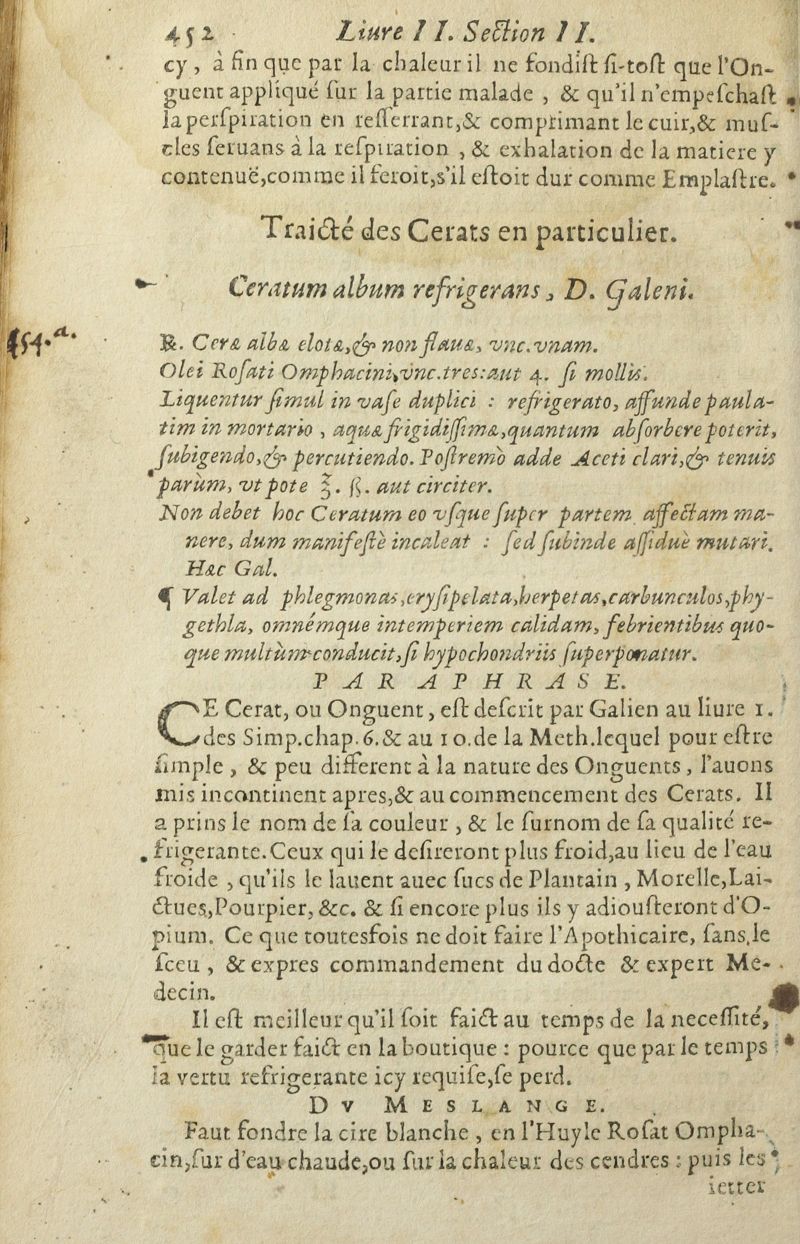 452 Liure II. Section II.
cy, à fin que par la chaleur il ne fondist si-tost que l'On-
guent appliqué sur la partie malade, & qu'il n'empeschast
la perspiration en resserrant,& comprimant le cuir,& mus-
cles seruans à la respiration, & exhalation de la matiere y
contenuë,comme il feroit,s'il estoit dur comme Emplastre.
Traicté des Cerats en particulier.
Ceratum album refrigerans, D. Galeni.
454.a.
℞. Ceræ albæ elotæ,& non flauæ, vnc.vnam.
Olei Rosati Omphacini,vnc.tres:aut 4. si mollis.
Liquentur simul in vase duplici : refrigerato, affunde paula-
tim in mortario, aquæ frigidissimæ,quantum absorbere poterit,
subigendo,& percutiendo. Postremò adde Aceti clari,& tenuis
parùm, vtpote ℥. ß. aut circiter.
Non debet hoc Ceratum eo vsque super partem affectam ma-
nere, dum manifestè incaleat : sed subinde assiduè mutari.
Hæc Gal.
¶ Valet ad phlegmonas,erysipelata,herpetas,carbunculos,phy-
gethla, omnémque intemperiem calidam, febrientibus quo-
que multùm conducit,si hypochondriis superponatur.
PARAPHRASE.
CE Cerat, ou Onguent, est descrit par Galien au liure 1.
des Simp.chap.6.& au 10.de la Meth.lequel pour estre
simple, & peu different à la nature des Onguents, l'auons
mis incontinent apres,& au commencement des Cerats. Il
a prins le nom de sa couleur, & le surnom de sa qualité re-
frigerante.Ceux qui le desireront plus froid,au lieu de l'eau
froide, qu'ils le lauent auec sucs de Plantain, Morelle,Lai-
ctues,Pourpier, &c. & si encore plus ils y adiousteront d'O-
pium. Ce que toutesfois ne doit faire l'Apothicaire, sans le
sceu, & expres commandement du docte & expert Me-
decin.
Il est meilleur qu'il soit faict au temps de la necessité,
que le garder faict en la boutique : pource que par le temps
la vertu refrigerante icy requise,se perd.
DV MESLANGE.
Faut fondre la cire blanche, en l'Huyle Rosat Ompha-
cin,sur d'eau chaude,ou sur la chaleur des cendres : puis les
ietter